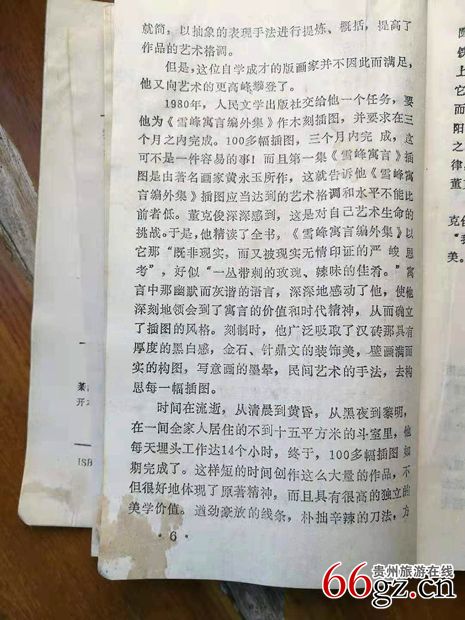 就简，以抽象的表现手法进行提炼、概括，提高了
作品的艺术格调。
但是，这位自学成才的版画家并不因此而满足，
他又向艺术的更高峰攀登了。
1980年，人民文学出版社交给他一个任务，要
他为《雪峰寓言编外集》作木刻插图，并要求在三
个月之内完成。100多幅插图，三个月内完 成，这
可不是一件容易的事！而且第一集《雪峰寓言》插
图是由著名画家黄永玉所作，这就告诉他《雪峰寓
言编外集》插图应当达到的艺术格调和水平不能比
前者低。董克俊深深感到，这是对自己艺术生命的
挑战。于是，他精读了全书，《雪峰寓言编外集》以
它那“既非现实，而又被现实无情印证的严 峻 思
考”，好似“一丛带刺的玫瑰、辣味的佳肴。”寓
言中那幽默而灰谐的语言，深深地感动了他，使他
深刻地领会到了寓言的价值和时代精神，从而确立
了插图的风格。刻制时，他广泛吸取了汉砖那具有
厚度的黑白感，金石、针鼎文的装饰美，壁画满而
实的构图，写意画的墨晕，民间艺术的手法，去构
思每一幅插图。
时间在流逝，从清晨到黄昏，从黑夜到黎明，
在一间全家人居住的不到十五平方米的斗室里，他
每天埋头工作达14个小时，终于，100多幅插图如
期完成了。这样短的时间创作这么大量的作品，不
但很好地体现了原著精神，而且具有很高的独立的
美学价值。遒劲豪放的线条，朴拙辛辣的刀法，方
·6·
开本
ISB
上
了
而
阳
之
律
董
克俊
美。
贵州旅游在线
66gz.cn